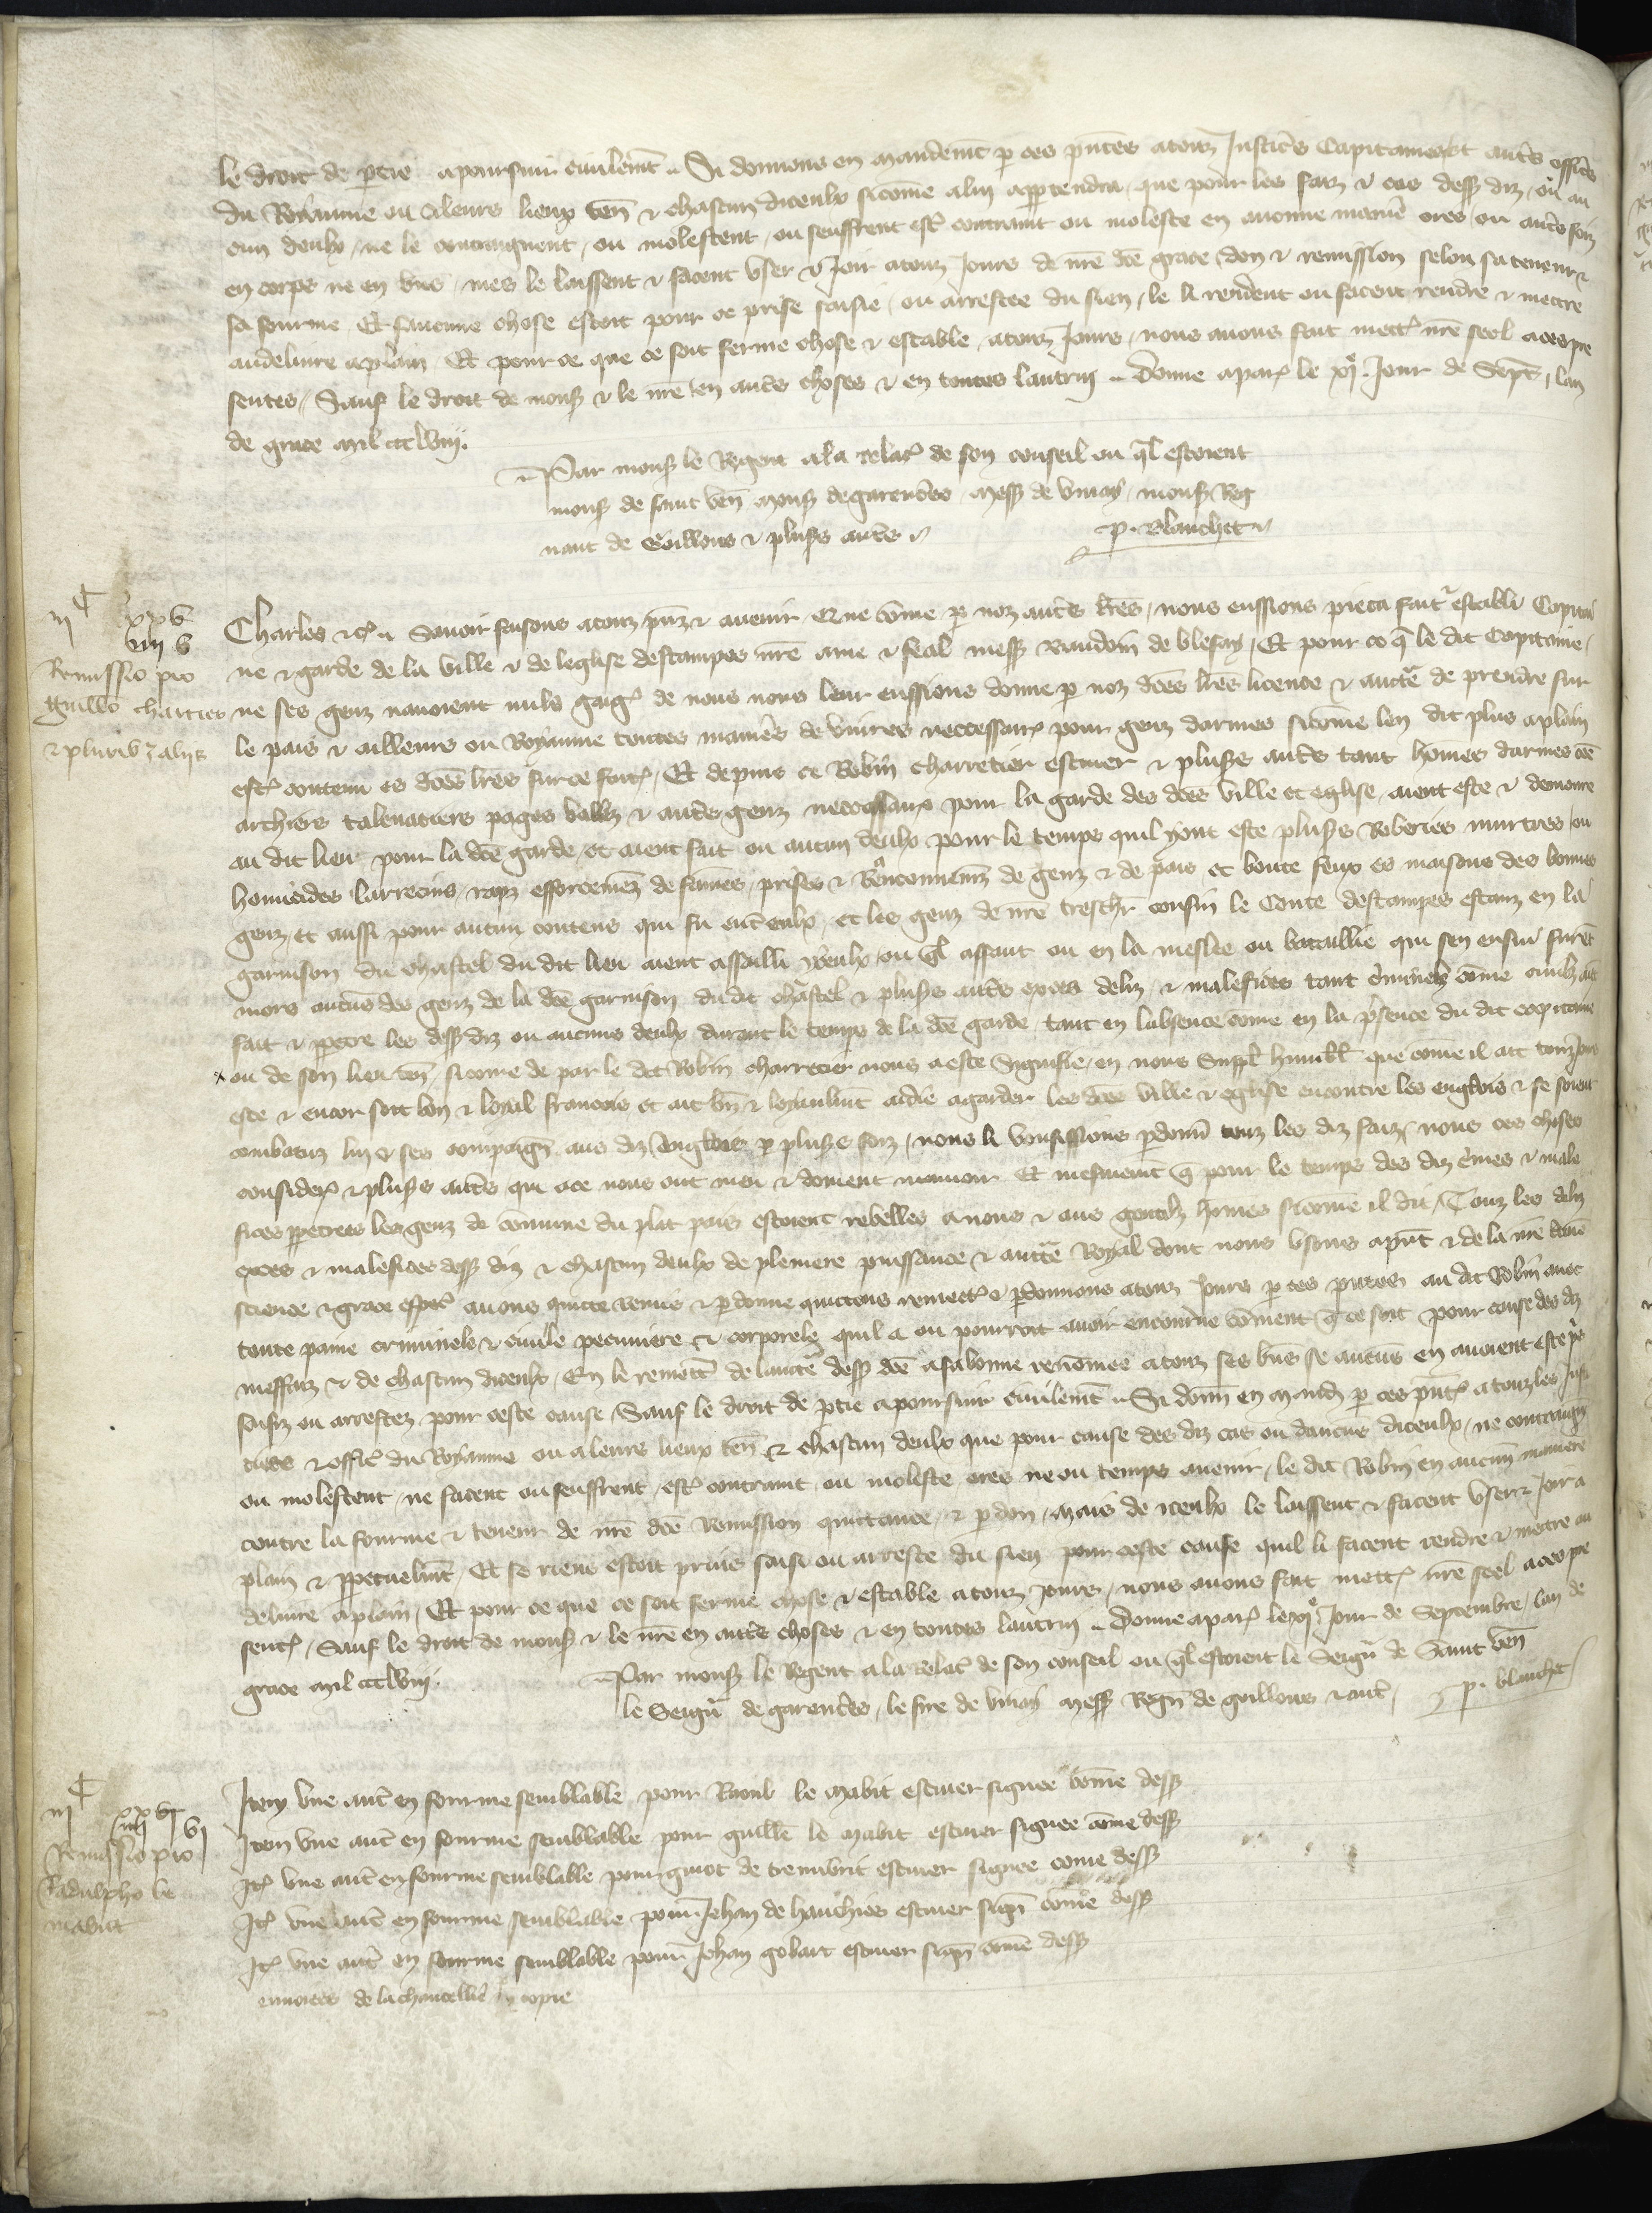 le droit de ptie apoursuir civilemt Si donnons en mandemt p ces pntes atouz Justices Capitaines et autres offices
du Royaume ou aleurs lieux ten & chascun diceulx sicome alui appartendra que pour les faiz & cas dess diz ou au
cun deulx ne le contraignent ou molestent ou seuffrent est contraint ou moleste en aucune maniere ores ou autrefoiz
en corps ne en biens mes le laissent & facent user & Joir atouz Jours de nre dce grace don & remission selon sa teneur &
sa fourme Et saucune chose estoit pour ce prise saisie ou arrestee du sien le li rendent ou facent rendre & mectre
audelivre aplain Et pour ce que ce soit ferme chose & estable atouz Jours nous avons fait mettre nre seel a ces pre
sentes Sauf le droit de mons & le nre en autres choses & en toutes lautrui Donne apar le xje Jour de Sept lan
de grace mil ccclviij.
Par mons le Regent ala relat de son conseil ou ql estoient
mons de saint ven mons de garencres mess de vinay mons Reg
naut de Goillons & pluss autres
p. Blanchet
Charles &c Savoir faisons atouz pnz & avenir Que come p noz autres lres nous eussions pieca fait & establi Capitai
ne & garde de la ville & de leglise destampes nre ame & feal mess Baudoin de blesay Et pour ce q le dit Capitaine
ne ses genz navoient nulz gaig de nous nous leur eussions donne p noz dces lres licence & aucte de prendre sur
le pais & ailleurs ou Royaume toutes manieres de vivres neccessair pour genz darmes sicome len dit plus aplain
est contenu es dces lres sur ce fait Et depuis ce Robin charretier escuier & pluss autres tant homes darmes come
archiers talevaciers pages vallez & autres genz neccessaires pour la garde des dces ville et eglise aient este & demoure
au dit lieu pour la dce garde et aient fait ou aucun deulx pour le temps quil yont este pluss Roberies murtres ou
homicides larrecins rapz efforcemenz de fames prises & Renconnemenz de genz & de pais et boute feux es maisons des bonnes
genz et aussi pour aucun contens qui fu entre eulx et les genz de nre treschr cousin le Conte destampes estanz en la
garnison du chastel du dit lieu aient assailli yceulx ou ql assaut ou en la meslee ou bataillie qui sen ensui furet
mors aucuns des genz de la dce garnison du dit chastel & pluss autres exces deliz & malefices tant criminelx come civilz aient
fait & ppetre les dess diz ou aucuns deulx durant le temps de la dce garde tant en labsence come en la presence du dit capitaine
ou de son lieu ten sicome de par le dit Robin charretier nous a este signifie en nous suppl humblt que come il ait touzjours
este & encor soit bon & loyal francois et ait bn & loyaulmt aidie agarder les dces ville & eglise encontre les englois & se soient
combatuz lui & ses compaign aus diz Englois p pluss foiz nous li vousissions pdonn touz les diz faiz nous ces choses
consider & pluss autres qui ace nous ont meu & doivent mouvoir Et mesmemt q pour le temps des diz crimes & male
fices ppetrees les genz de commune du plat pais estoient rebelles a nous & aus gentilz homes sicome il dit Touz les deliz
exces & malefices dess diz & chascun deulx de pleniere puissance & aucte Royal dont nous usons apnt & de la nre certaine
science & grace espec avons quicte remis & pdonne quictons remect & pdonnons atouz Jours p ces pntes au dit Robin avec
toute paine criminele & civile pecuniere & corporele quil a ou pourroit avoir encourue coment q ce soit pour cause des diz
meffaiz & de chascun diceulx En le remett de laucte dess dce asa bonne renomee atouz ses biens se aucuns en avoient este pris
saisiz ou arrestez pour ceste cause Sauf le droit de ptie apoursuir civilemt Si donn en mand p ces pnt a touz les Justi
ciers & offic du Royaume ou aleurs lieux ten & chascun deulx que pour cause des diz cas ou daucun diceulx ne contraign
ou molestent ne facent ou seuffrent est contraint ou moleste ores ne ou temps avenir le dit Robin en aucune maniere
contre la fourme & teneur de nre dce Remission quictance & pdon mais de iceulx le laissent & facent user & Joir a
plain & ppetuelmt Et se riens estoit prins saisi ou arreste du sien pour ceste cause quil li facent rendre & mectre au
delivre aplain Et pour ce que ce soit ferme chose & estable atouz jours nous avons fait mett nre seel a ces pre
sent Sauf le droit de mons & le nre en autres choses & en toutes lautrui Donne apar le xje Jour de Septembre lan de
grace mil ccclviij.
Par mons le Regent ala relat de son conseil ou ql estoient le Seign de Saint ven
le Seign de garencres le sire de vinay mess Regn de goillons & autr
p. blanchet
iij C iiij xx v
Remissio pro
Guillo chartier
& plurib aliis
Item une autre en fourme semblable pour Raoul le Mabit escuier signee come dess
Item une autre en fourme semblable pour guille le Mabit escuier signee come dess
It une autre en fourme semblable pour guiot de escuier signee come dess
It une autre en fourme semblable pour Jehan de hanches escuier sign come dess
It une autre en fourme semblable pour Jehan gobart escuier sign come dess
iij C iiij xx vj
Remissio pro
Radulpho le
mabit